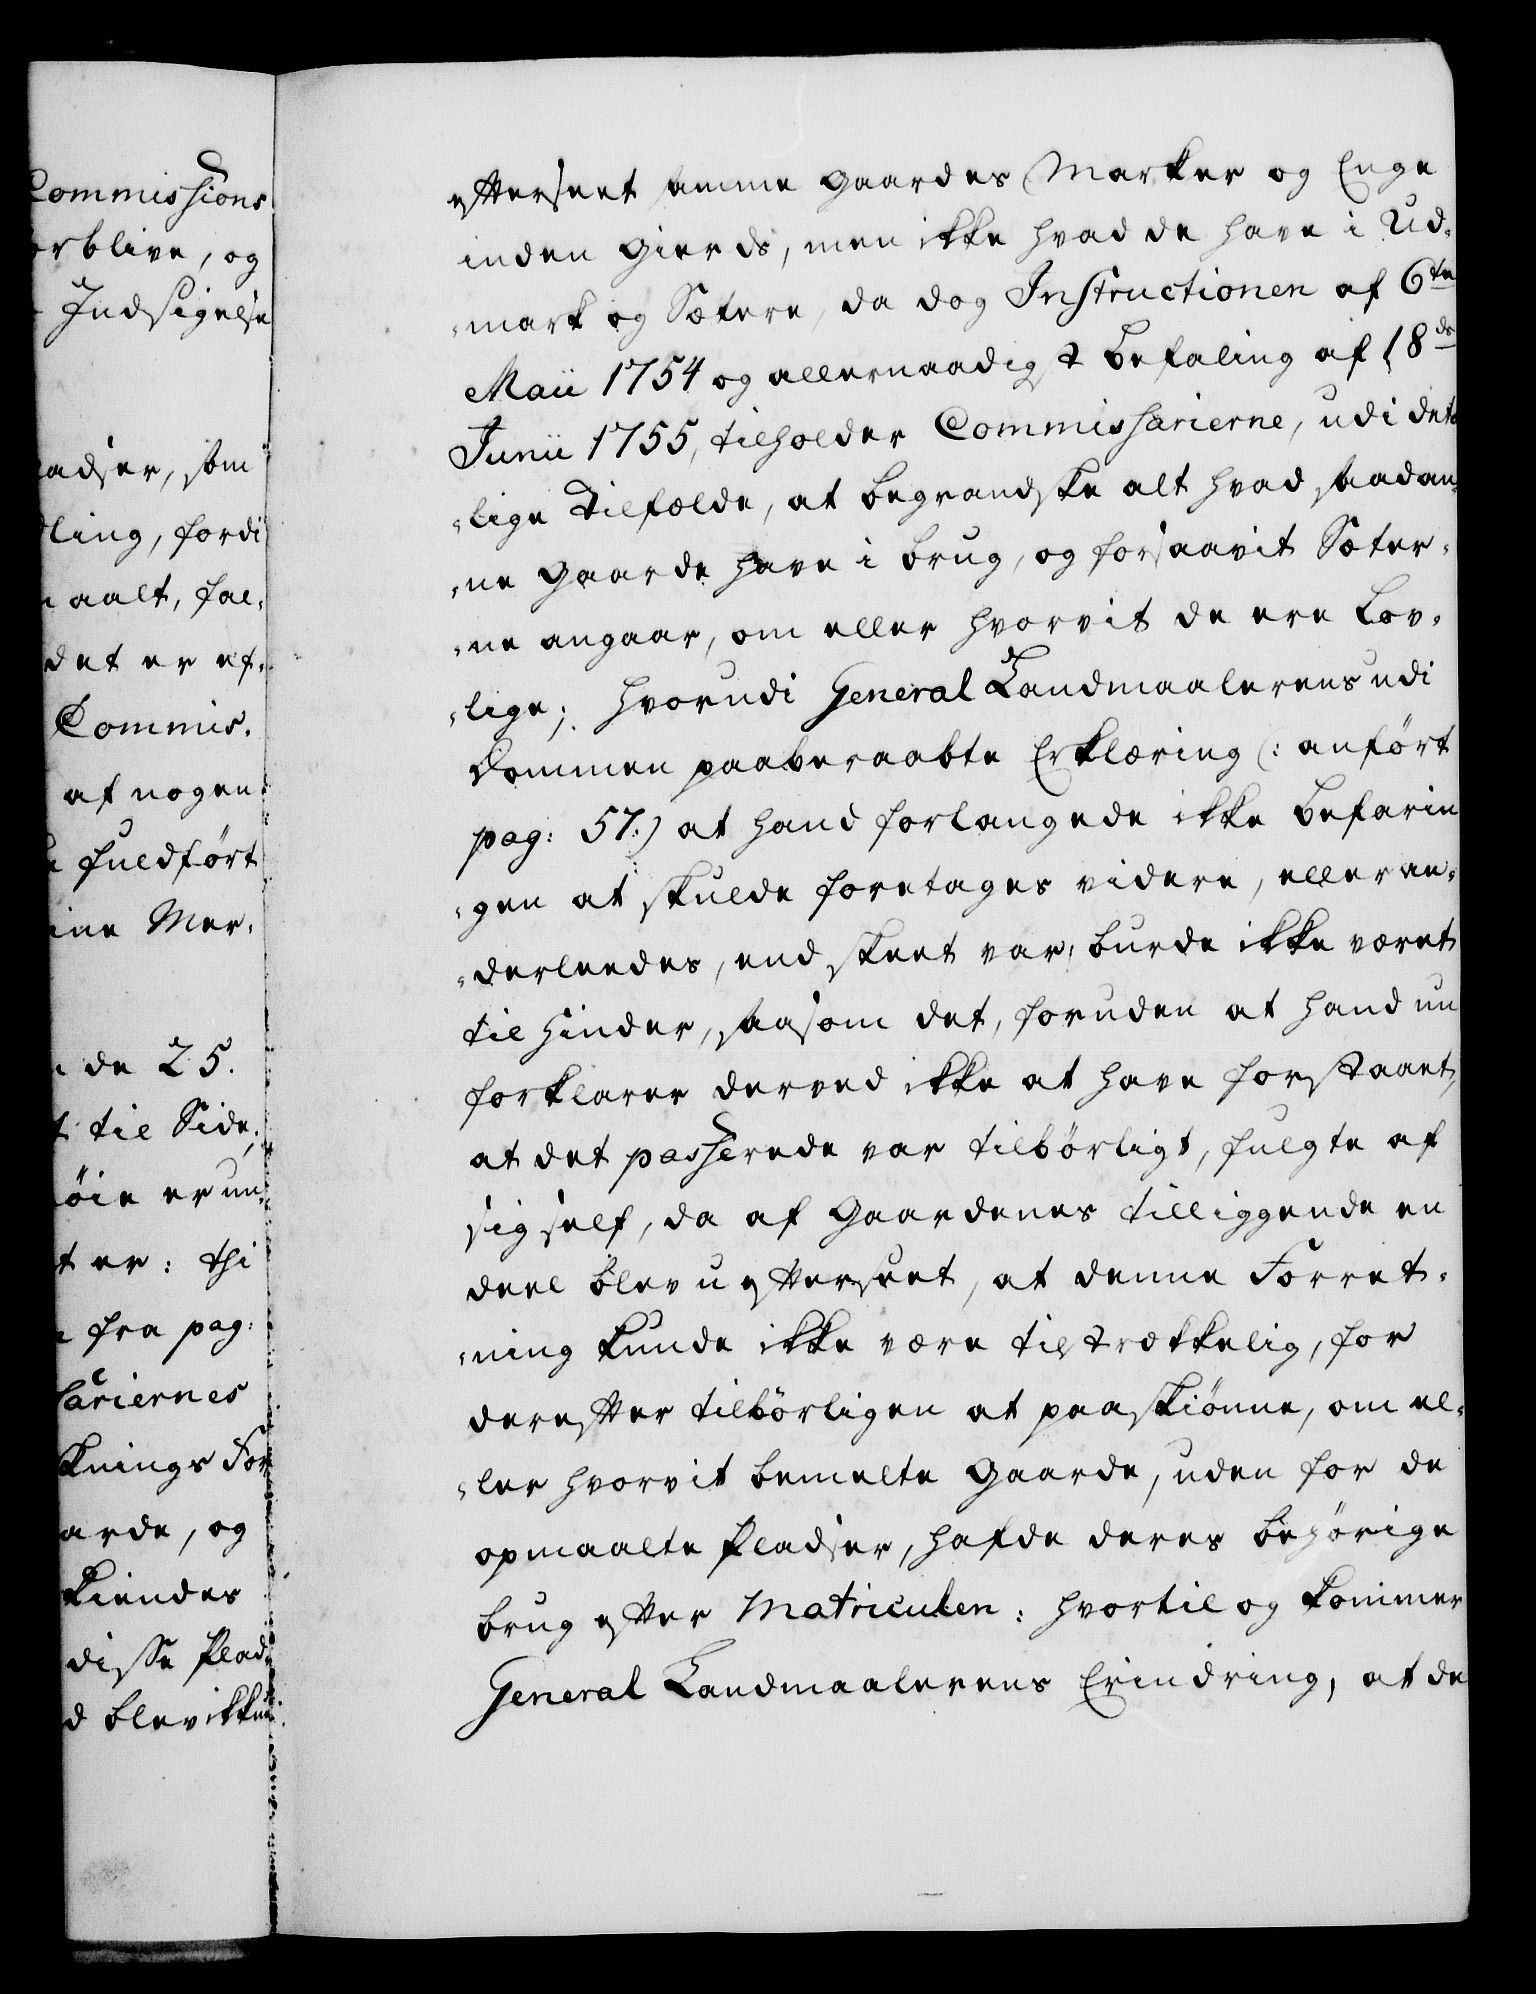 Commissions
orblive, og
Indsigelse
adser, som
ling, fordi
aalt, fal-
det er ef-
Commis-
af nogen
fuldført
ine Mer-
de 25.
til Side,
øie er un-
t er: thi
fra pag:
sariernes
knings For
arde, og
kiendes
disse Plad-
d blev ikkun
efterseet samme Gaardes Marker og Enge
inden Gierds, men ikke hvad de have i Ud-
-mark og Sætere, da dog Instructionen af 6te
Maii 1754 og allernaadigst Befaling af 18de
Junii 1755, tilholder Commissarierne, udi det-
-lige Tilfælde, at begrandske alt hvad saadan-
-ne Gaarde have i brug, og forsaavit Sæter-
-ne angaar, om eller hvorvit de ere Lov-
-lige; hvorudi General Landmaalerens udi
Dommen paaberaabte Erklæring (: anført
pag: 57:) at hand forlangede ikke Befarin
-gen at skulde foretages videre, eller an-
-derleedes, end skeet var, burde ikke været
til Hinder, saasom det, foruden at hand nu
forklarer derved ikke at have forstaaet,
at det passerede var tilbørligt, fulgte af
sig self, da af Gaardenes tilliggende en
deel blev u efterseet, at denne Forret-
-ning kunde ikke være tilstrækkelig, for
derefter tilbørligen at paaskiønne, om el-
-ler hvorvit bemelte Gaarde, uden for de
opmaalte Pladser, hafde deres behørige
brug efter Matriculen: hvortil og kommer
General Landmaalerens Erindring, at de